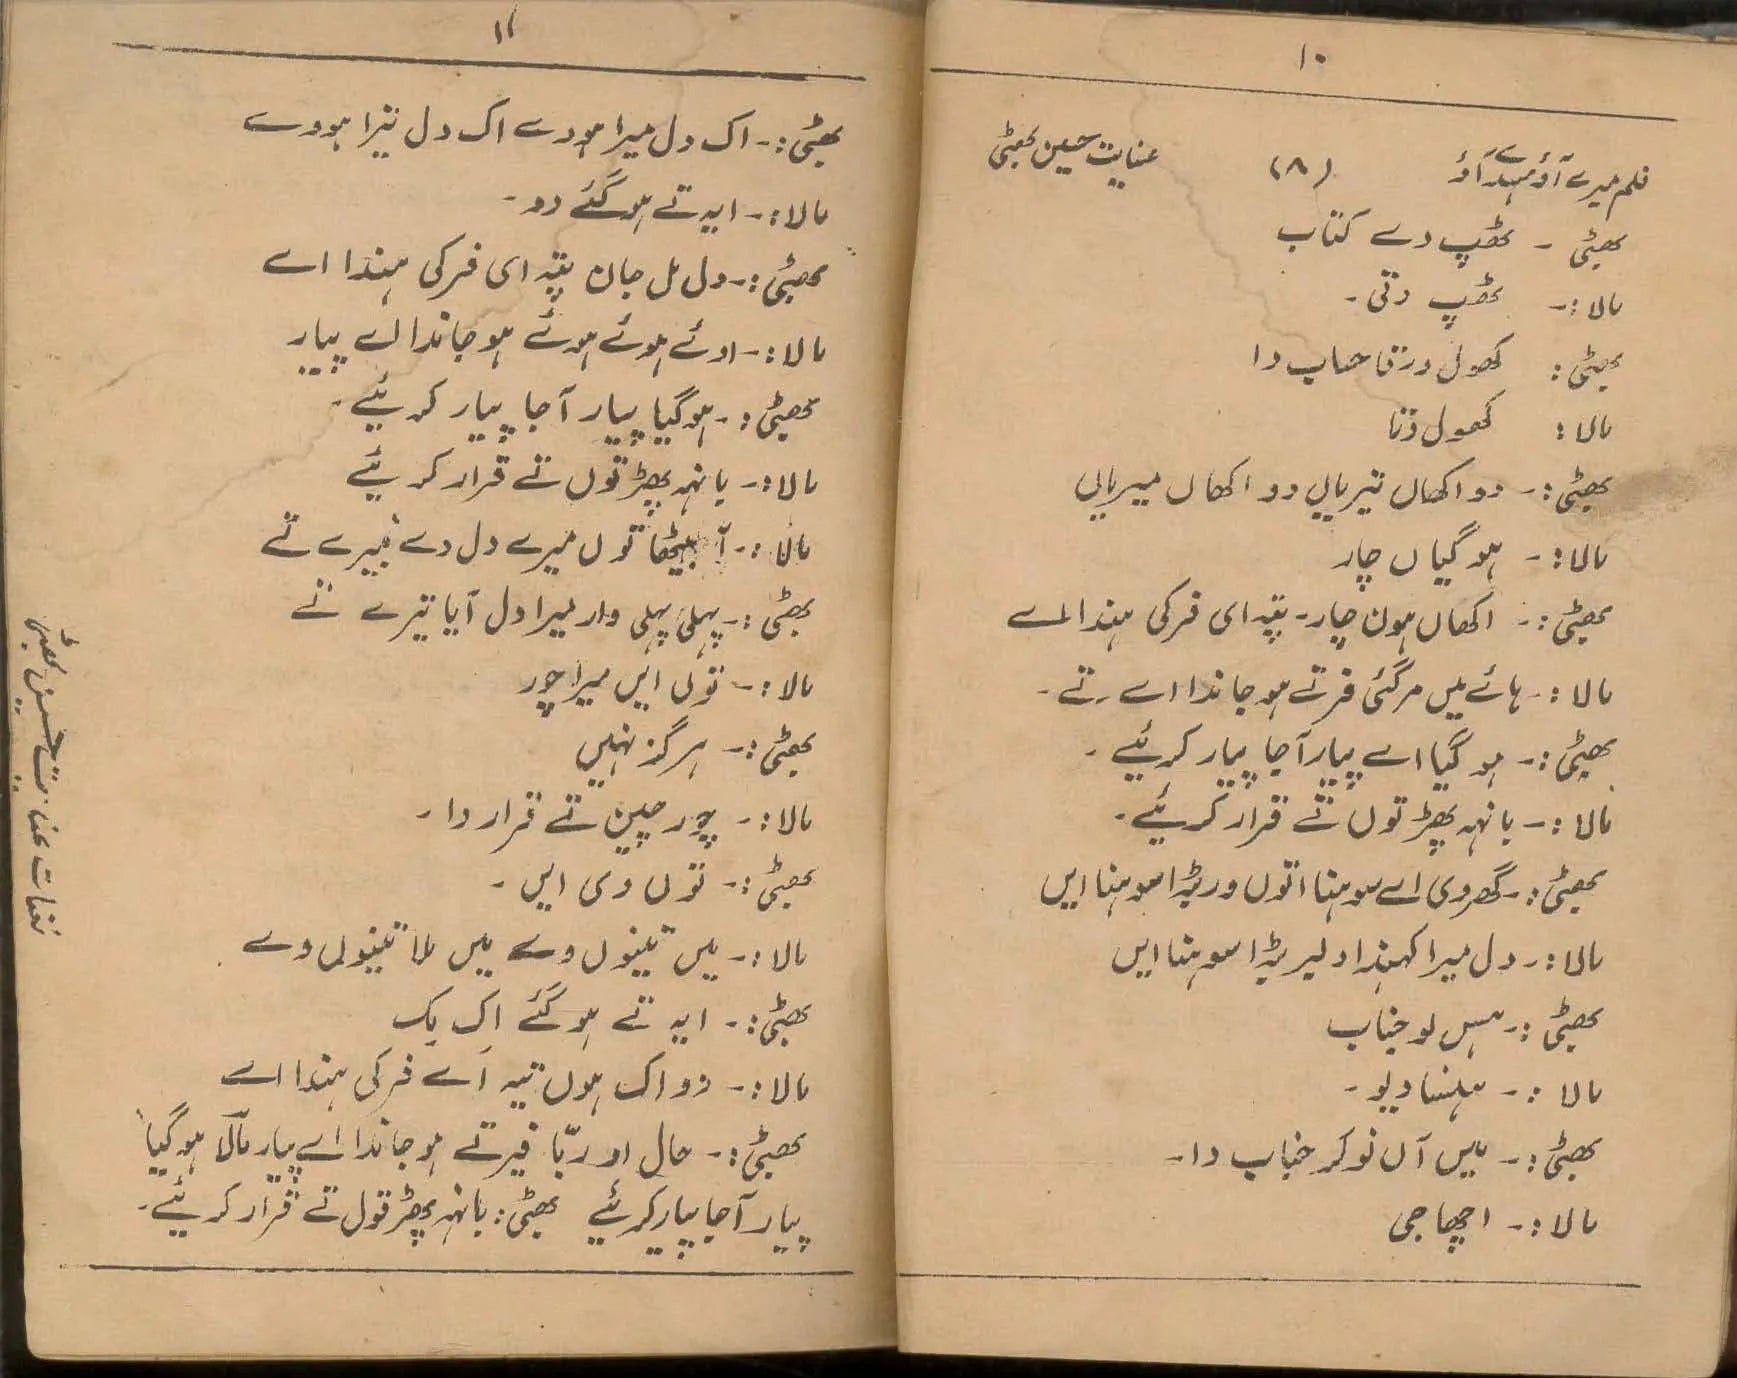 ۱۰
فلم میرے آؤ (۸) عنایت حسین بھٹی
بھٹی - ٹھپ دے کتاب
مالا:- ٹھپ دتی -
بھٹی: کھول ورقا حساب دا
مالا: کھول دتا
بھٹی:- دو اکھاں تیریاں دو اکھاں میریاں
مالا:- ہو گیاں چار
بھٹی:- اکھاں ہون چار - پتہ ای فر کی ہندا اے
مالا:- ہائے میں مر گئی فر تے ہو جاندا اے - تے -
بھٹی:- ہو گیا اے پیار آ جا پیار کرئیے -
مالا:- بانہہ پھڑ توں تے قرار کرئیے -
بھٹی:- گھر وی اے سوہنا اتوں ور بڑا سوہنا ایں
مالا:- دل میرا کہندا دلیر بڑا سوہنا ایں
بھٹی:- ہس لو جناب
مالا:- ہسا دیو -
بھٹی:- میں آں نوکر جناب دا -
مالا:- اچھا جی
۱۱
بھٹی:- اک دل میرا ہووے اک دل تیرا ہووے
مالا:- ایہ تے ہو گئے دو -
بھٹی:- دل مل جان پتہ ای فر کی ہندا اے
مالا:- اوئے ہوئے ہوئے ہو جاندا اے پیار
بھٹی:- ہو گیا پیار آ جا پیار کرئیے -
مالا:- بانہہ پھڑ توں تے قرار کرئیے
مالا:- آ بیٹھا توں میرے دل دے بنیرے تے
بھٹی:- پہلی پہلی وار میرا دل آیا تیرے تے
مالا:- توں ایں میرا چور
بھٹی:- ہرگز نہیں
مالا:- چور چین تے قرار دا -
بھٹی:- توں وی ایں -
مالا:- میں تینوں وے میں ملا تینوں وے
بھٹی:- ایہ تے ہو گئے اک یک
مالا:- دو اک ہوں تپہ اے فر کی ہندا اے
بھٹی:- حال او ربّا فیر تے ہو جاندا اے پیار مالا ہو گیا
پیار آ جا پیار کرئیے بھٹی: بانہہ پھڑ توں تے قرار کرئیے -
نغمات عنایت حسین بھٹی